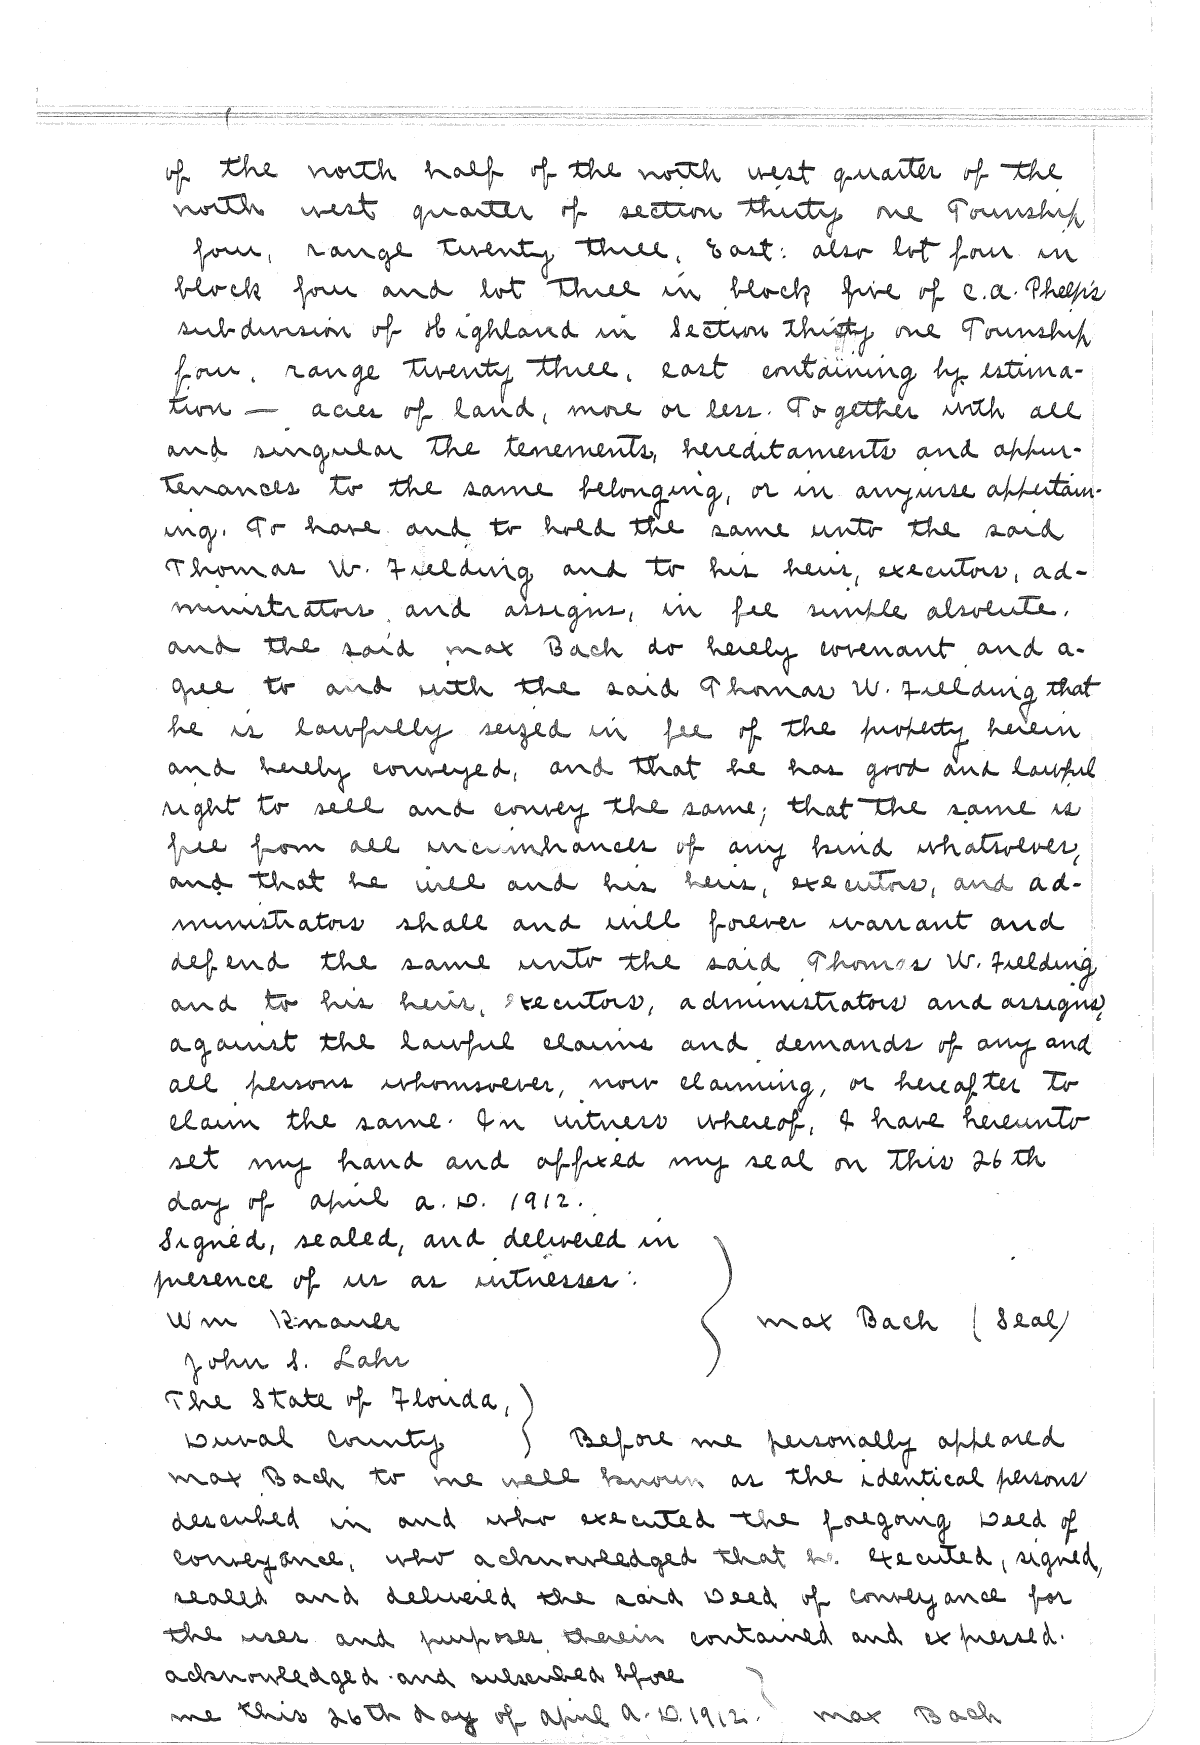 of the north half of the north west quarter of the
north west quarter of section thirty one Township
four, range twenty three, East: also lot four in
block four and lot three in block five of C.A. Phelps
subdivision of Highland in Section thirty one Township
four, range twenty three, east containing by estima-
tion — acres of land, more or less. Together with all
and singular the tenements, hereditaments and appur-
tenances to the same belonging, or in anywise appertain-
ing. To have and to hold the same unto the said
Thomas W. Fielding and to his heirs, executors, ad-
ministrators and assigns, in fee simple absolute.
and the said Max Bach do hereby covenant and a-
gree to and with the said Thomas W. Fielding that
he is lawfully seized in fee of the property herein
and hereby conveyed, and that he has good and lawful
right to sell and convey the same; that the same is
free from all incumbrances of any kind whatsoever,
and that he will and his heirs, executors, and ad-
ministrators shall and will forever warrant and
defend the same unto the said Thomas W. Fielding
and to his heirs, executors, administrators and assigns,
against the lawful claims and demands of any and
all persons whomsoever, now claiming, or hereafter to
claim the same. In witness whereof, I have hereunto
set my hand and affixed my seal on this 26th
day of April A.D. 1912.
Signed, sealed, and delivered in
presence of us as witnesses:
Wm Knauer
Max Bach (Seal)
John S. Lahr
The State of Florida,
Duval County
Before me personally appeared
Max Bach to me well known as the identical persons
described in and who executed the foregoing Deed of
Conveyance, who acknowledged that he executed, signed,
sealed and delivered the said Deed of Conveyance for
the uses and purposes therein contained and expressed.
acknowledged and subscribed before
me this 26th day of April A.D. 1912.
Max Bach